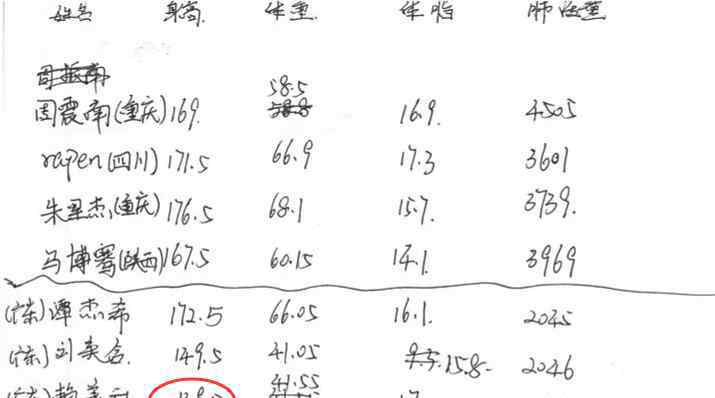 姓名 身高. 体重. 体脂 肺活量
周振南
58.5
周震南(重庆)169. 58.8 16.9. 4505
rapen(四川)171.5 66.9 17.3 3601
朱星杰,(重庆)176.5 68.1 15.7. 3739.
马博骞(陕西)167.5 60.15 14.1. 3969
(广东)谭杰希 172.5 66.05 16.1. 2045
(广东)刘奕含. 149.5 41.05 15.8- 2046
41.55